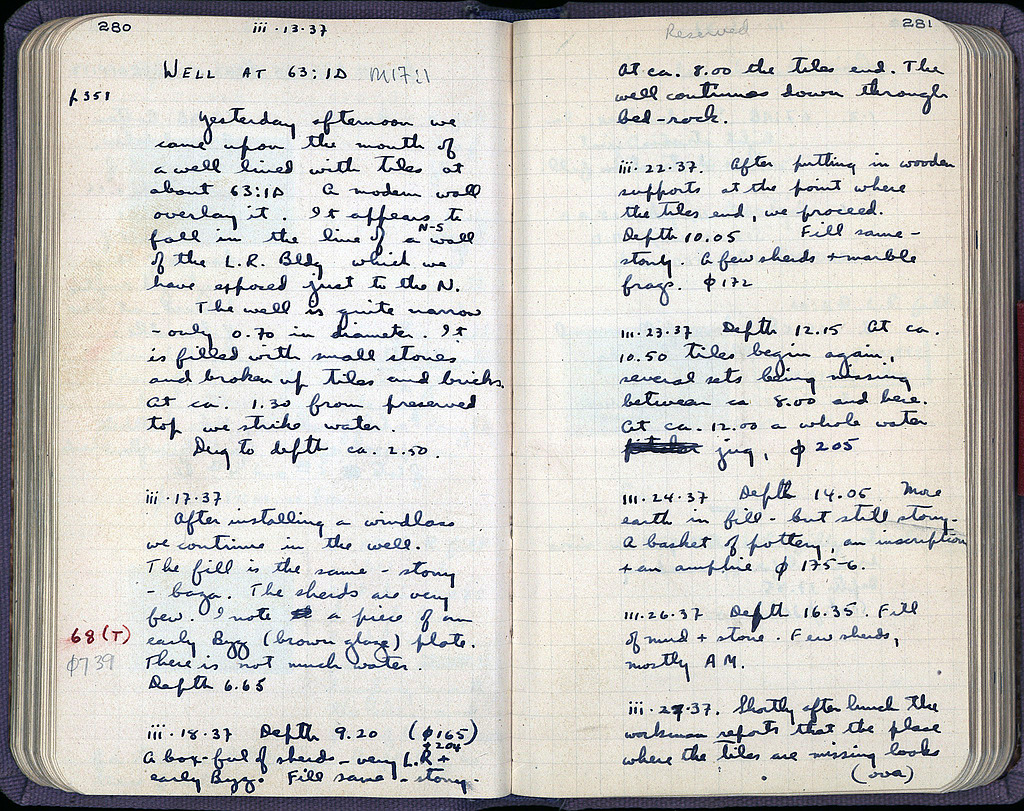 280
iii · 13 · 37
WELL AT 63:1Δ M17:1
p. 351
Yesterday afternoon we
came upon the mouth of
a well lined with tiles at
about 63:1Δ A modern wall
overlay it. It appears to
fall in the line of a N-S wall
of the L.R. Bldg which we
have exposed just to the N.
The well is quite narrow
- only 0.70 in diameter. It
is filled with small stones
and broken up tiles and bricks.
At ca. 1.30 from preserved
top we strike water.
Dug to depth ca. 2.50.
iii · 17 · 37
After installing a windlass
we continue in the well.
The fill is the same - stony
The sherds are very
few. I note a piece of an
68 (T)
early Byz (brown glaze) plate.
φ739
There is not much water.
Depth 6.65
iii · 18 · 37 Depth 9.20 (φ165)
+204
A box-full of sherds - very L.R +
early Byz. Fill same - stony.
281
Reserved
At ca. 8.00 the tiles end. The
well continues down through
bed-rock.
iii · 22 · 37. After putting in wooden
supports at the point where
the tiles end, we proceed.
Depth 10.05 Fill same -
stony. A few sherds + marble
frags. φ172
iii · 23 · 37 Depth 12.15 At ca.
10.50 tiles begin again,
several sets being missing
between ca 8.00 and here.
At ca. 12.00 a whole water
jug, φ 205
iii · 24 · 37 Depth 14.05 More
earth in fill - but still stony.
A basket of pottery, an inscription
+ an amphora φ 175-6.
iii · 26 · 37 Depth 16.35. Fill
of mud + stone. Few sherds,
mostly A M.
iii · 27 · 37. Shortly after lunch the
workman reports that the place
where the tiles are missing looks
(over)